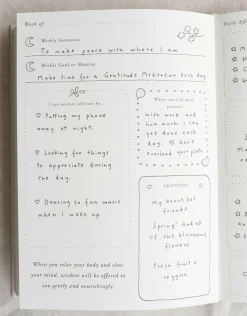 Week of
Weekly Intention
To make peace with where I am
Weekly Goal or Mantra
Make time for a Gratitude Meditation each day
I can nurture self-love by...
Putting my phone
away at night.
Looking for things
to appreciate during
the day.
Dancing to fun music
when I wake up.
When you relax your body and slow
your mind, wisdom will be offered to
you gently and nourishingly.
Where can I be more
patient?
With work and
how much I can
get done each
day. Don't
overload your plate
GRATITUDE
My beautiful
friends!
Spring! And all
of the blooming
flowers
Fresh fruit &
veggies.
Daily Aff